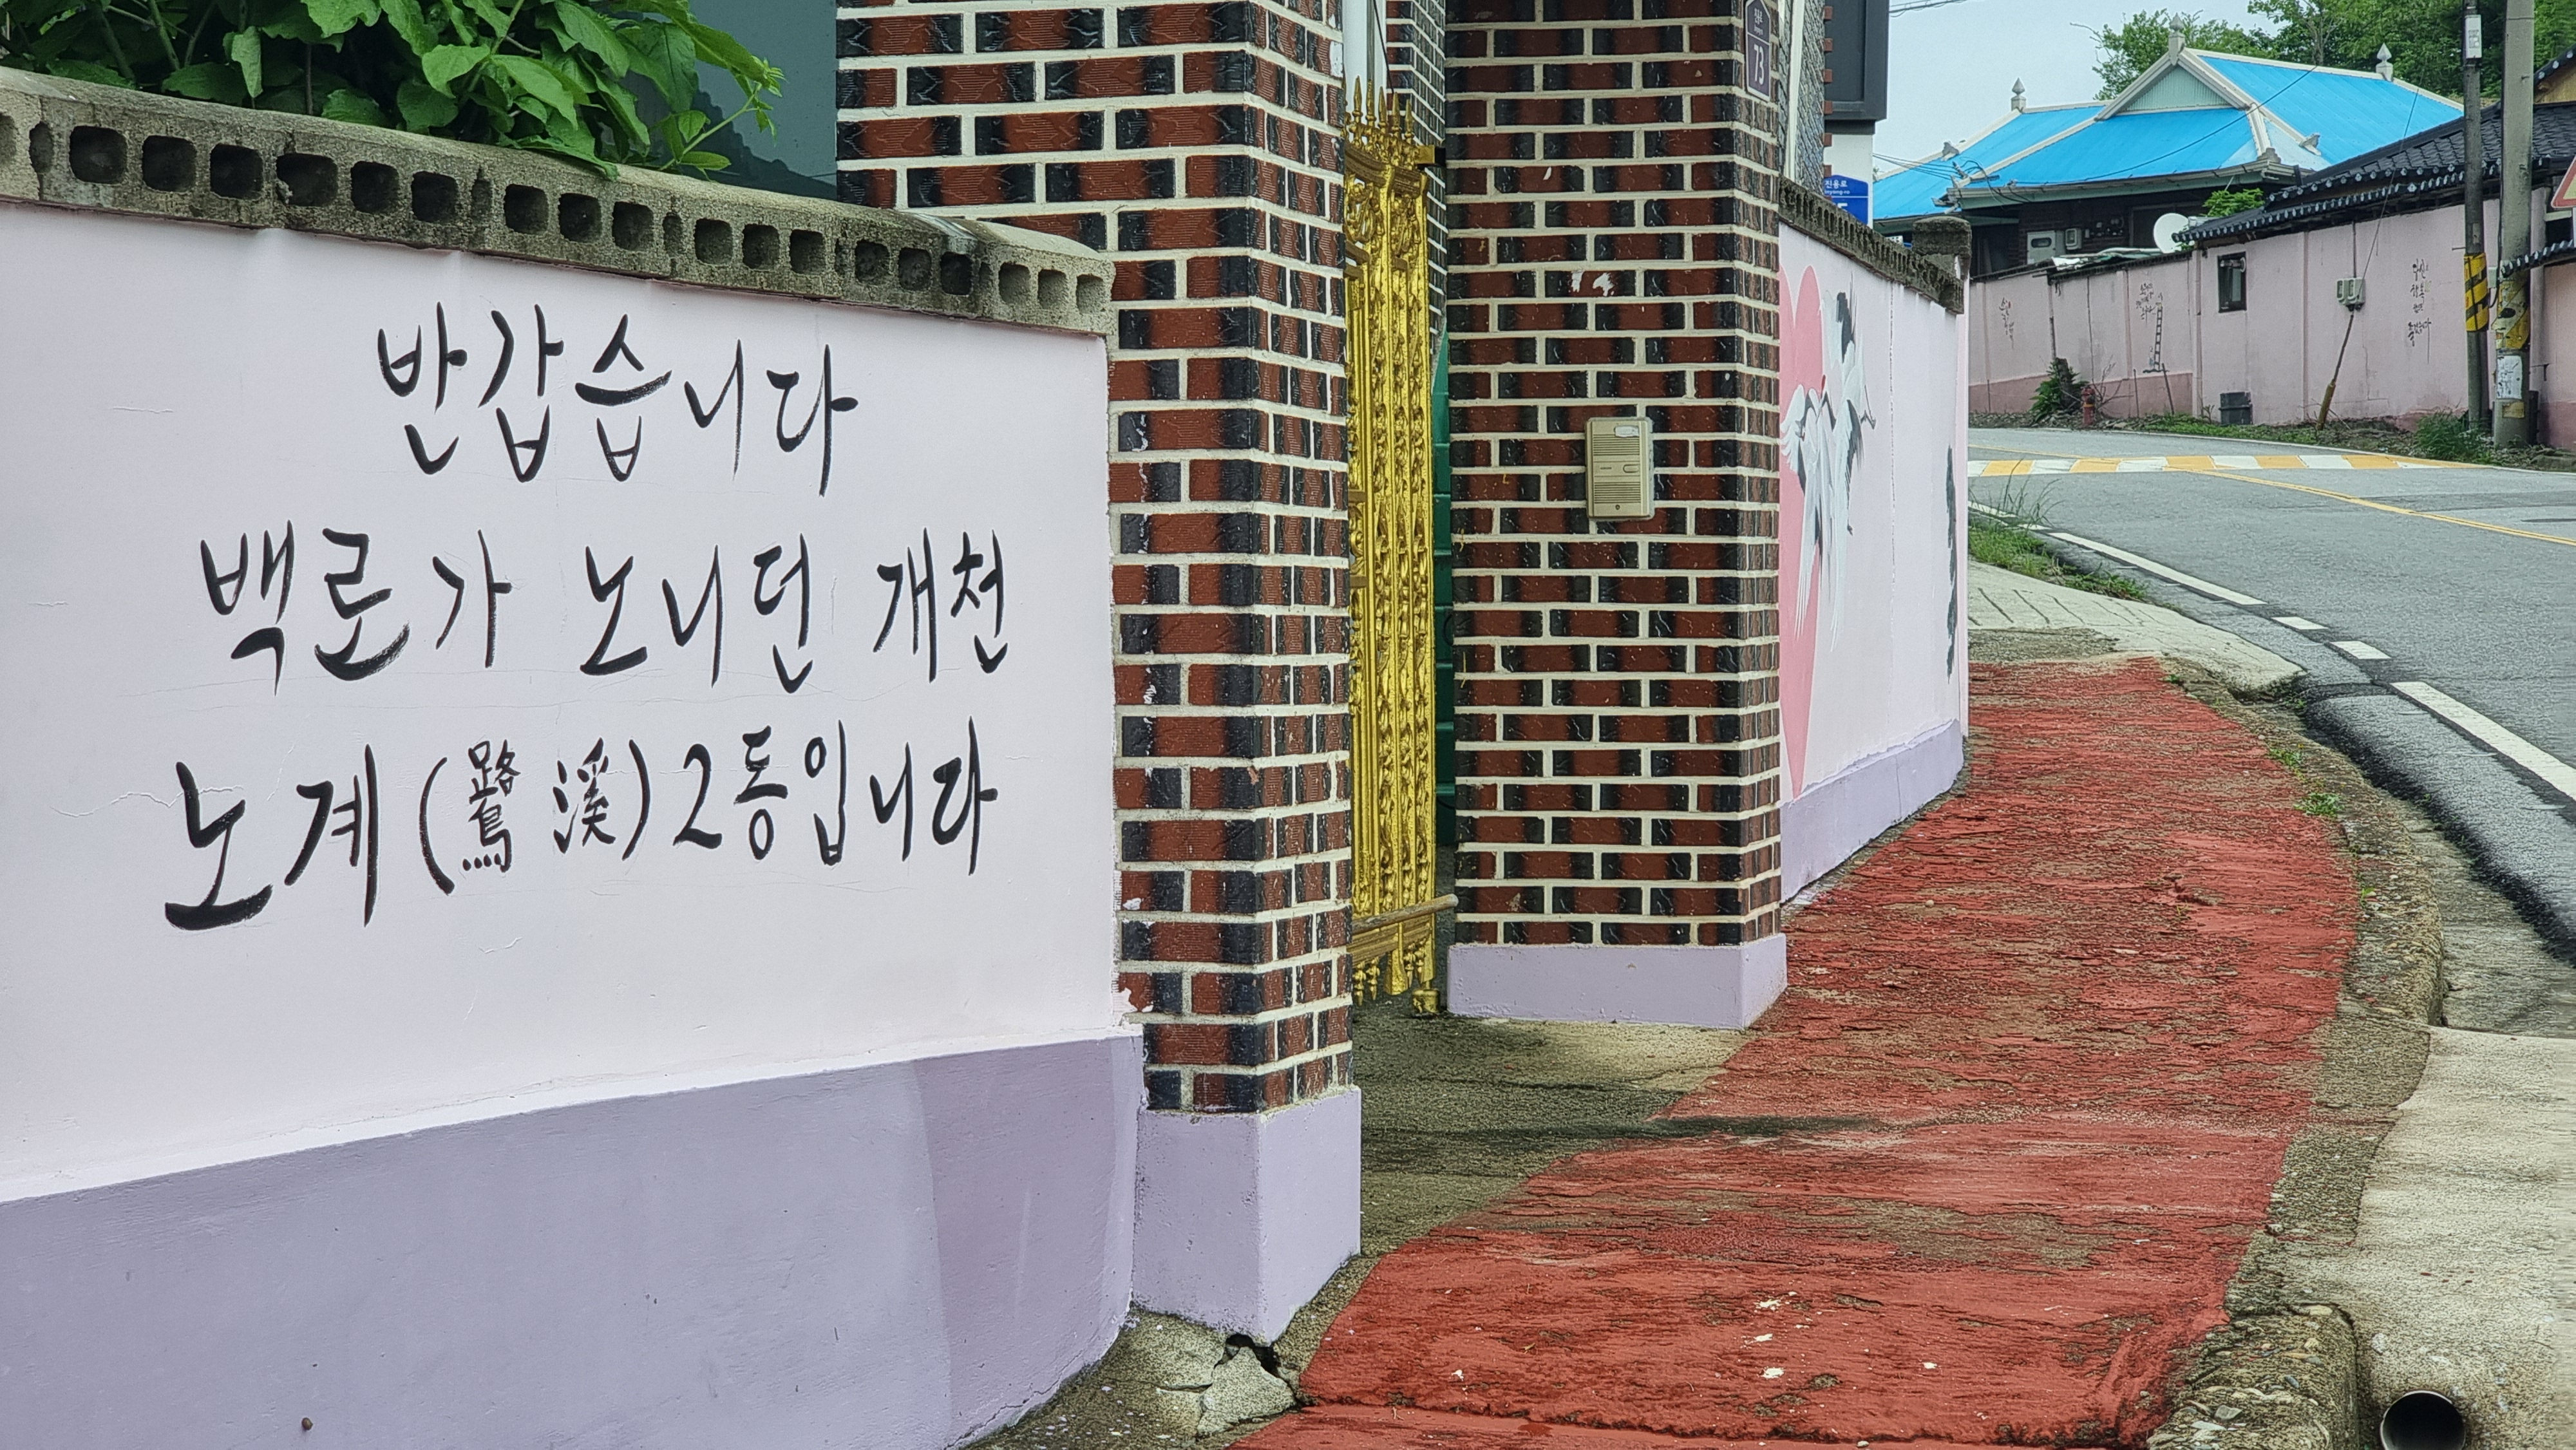 반갑습니다
백로가 노니던 개천
노계(鷺溪)2동입니다
73